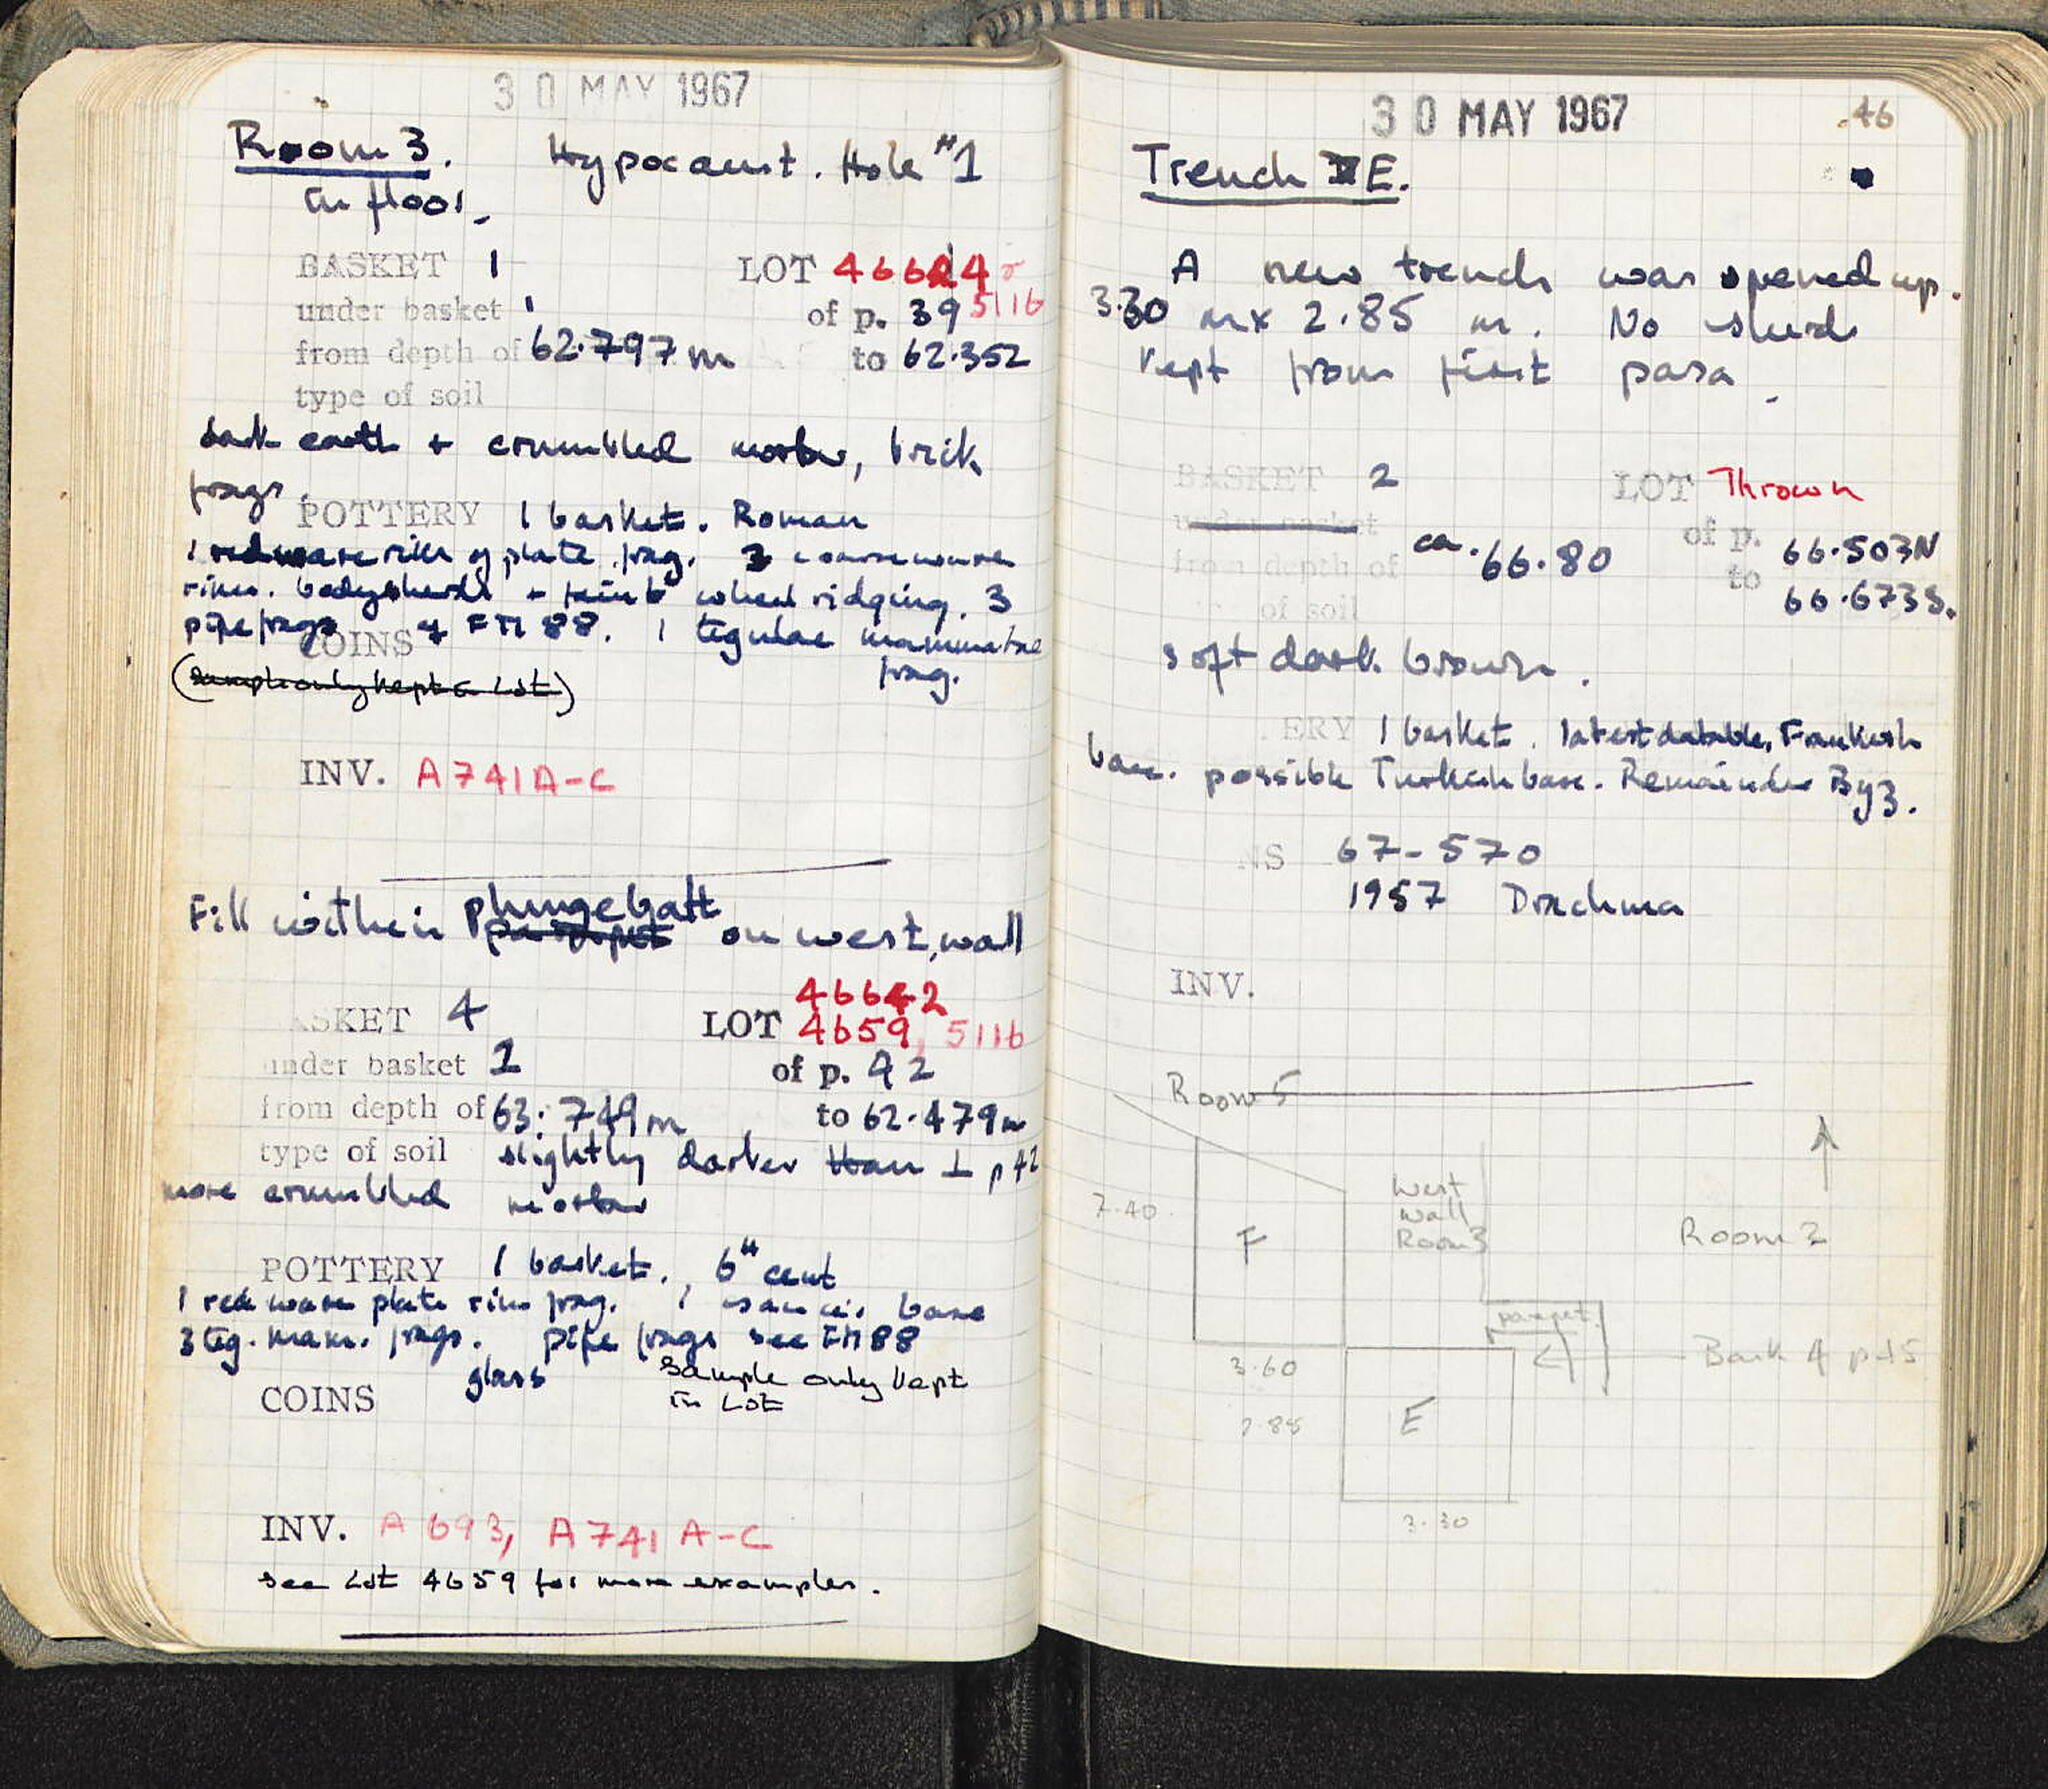 30 MAY 1967
Room 3. Hypocaust. Hole #1
in floor.
BASKET 1 LOT 46614
under basket 1 of p. 39 5116
from depth of 62.797 m to 62.352
type of soil
dark earth + crumbled mortar, brick
frags.
POTTERY 1 basket. Roman
1 redware rim of plate frag. 3 coarse ware
rims. bodysherds + faint wheel ridging. 3
pipe frags of FM 88. 1 tegulae mammatae
COINS
frag.
(sample only kept in Lot)
INV. A741A-C
Fill within plungebath on west wall
46642
BASKET 4 LOT 4659, 5116
under basket 1 of p. 42
from depth of 63.749m to 62.479m
type of soil slightly darker than 1 p 42
more crumbled mortar
POTTERY 1 basket. 6th cent
1 red ware plate rim frag. 1 base
3 teg. mam. frags. pipe frags see FM 88
glass sample only kept
COINS in Lot
INV. A 693, A741 A-C
see Lot 4659 for more examples.
30 MAY 1967 46
Trench E.
A new trench was opened up.
3.30 m x 2.85 m. No sherds
kept from first pass.
BASKET 2 LOT Thrown
under basket of p. 66.503N
from depth of ca. 66.80 to 66.673S.
of soil
soft dark brown.
ERY 1 basket. latest datable, Frankish
base. possible Turkish base. Remainder Byz.
NS 67-570
1957 Drachma
INV.
Room 5
7.40
F
West
Wall
Room 3
Room 3
parapet
Bask 4 p 45
3.60
2.85
E
3.30